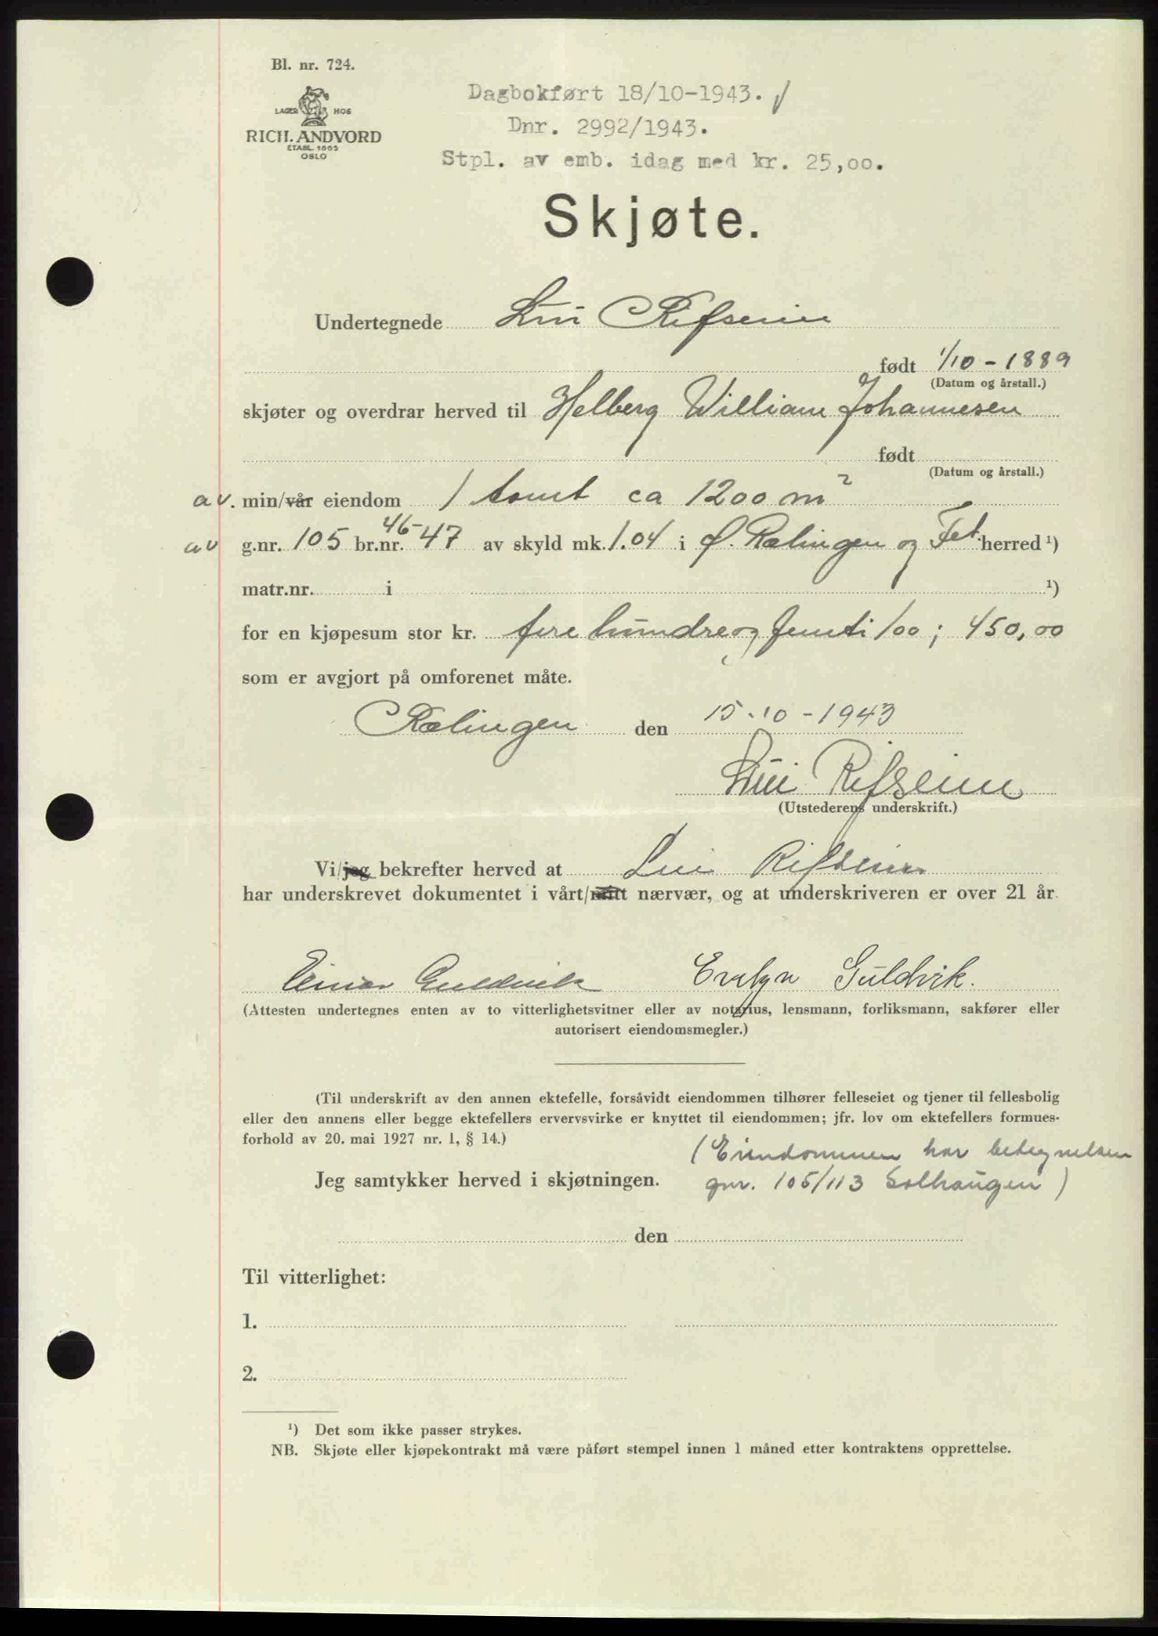 Bl. nr. 724.
LAGER HOS
RICH. ANDVORD
ETABL. 1865
OSLO
Dagbokført 18/10-1943.
Dnr. 2992/1943.
Stpl. av emb. idag med kr. 25,00.
Skjøte.
Undertegnede
født 1/10-1889
(Datum og årstall.)
skjøter og overdrar herved til Helberg William Johannesen
født
(Datum og årstall.)
av. min/vår eiendom 1 tomt ca 1200 m²
av g.nr. 105 br.nr. 46-47 av skyld mk. 1.04 i Ø. Rælingen og Fet herred ¹)
matr.nr. i ¹)
for en kjøpesum stor kr. fire hundre og femti /00; 450,00
som er avgjort på omforenet måte.
Rælingen den 15-10-1943
(Utstederens underskrift.)
Vi/jeg bekrefter herved at
har underskrevet dokumentet i vårt/mitt nærvær, og at underskriveren er over 21 år.
Einar Guldvik Evelyn Guldvik.
(Attesten undertegnes enten av to vitterlighetsvitner eller av notarius, lensmann, forliksmann, sakfører eller
autorisert eiendomsmegler.)
(Til underskrift av den annen ektefelle, forsåvidt eiendommen tilhører felleseiet og tjener til fellesbolig
eller den annens eller begge ektefellers ervervsvirke er knyttet til eiendommen; jfr. lov om ektefellers formues-
forhold av 20. mai 1927 nr. 1, § 14.)
(Eiendommen har betegnelsen
Jeg samtykker herved i skjøtningen. gnr. 105/113 Solhaugen)
den
Til vitterlighet:
1.
2.
¹) Det som ikke passer strykes.
NB. Skjøte eller kjøpekontrakt må være påført stempel innen 1 måned etter kontraktens opprettelse.